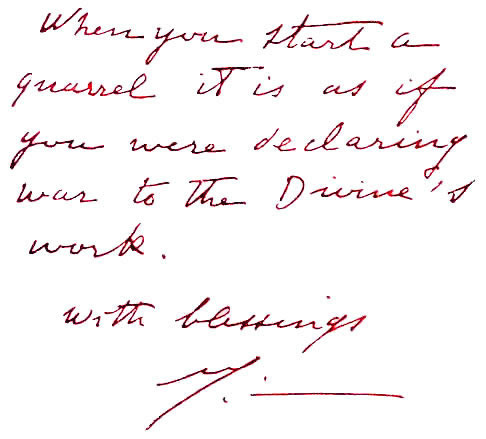 When you start a
quarrel it is as if
you were declaring
war to the Divine's
work.
with blessings